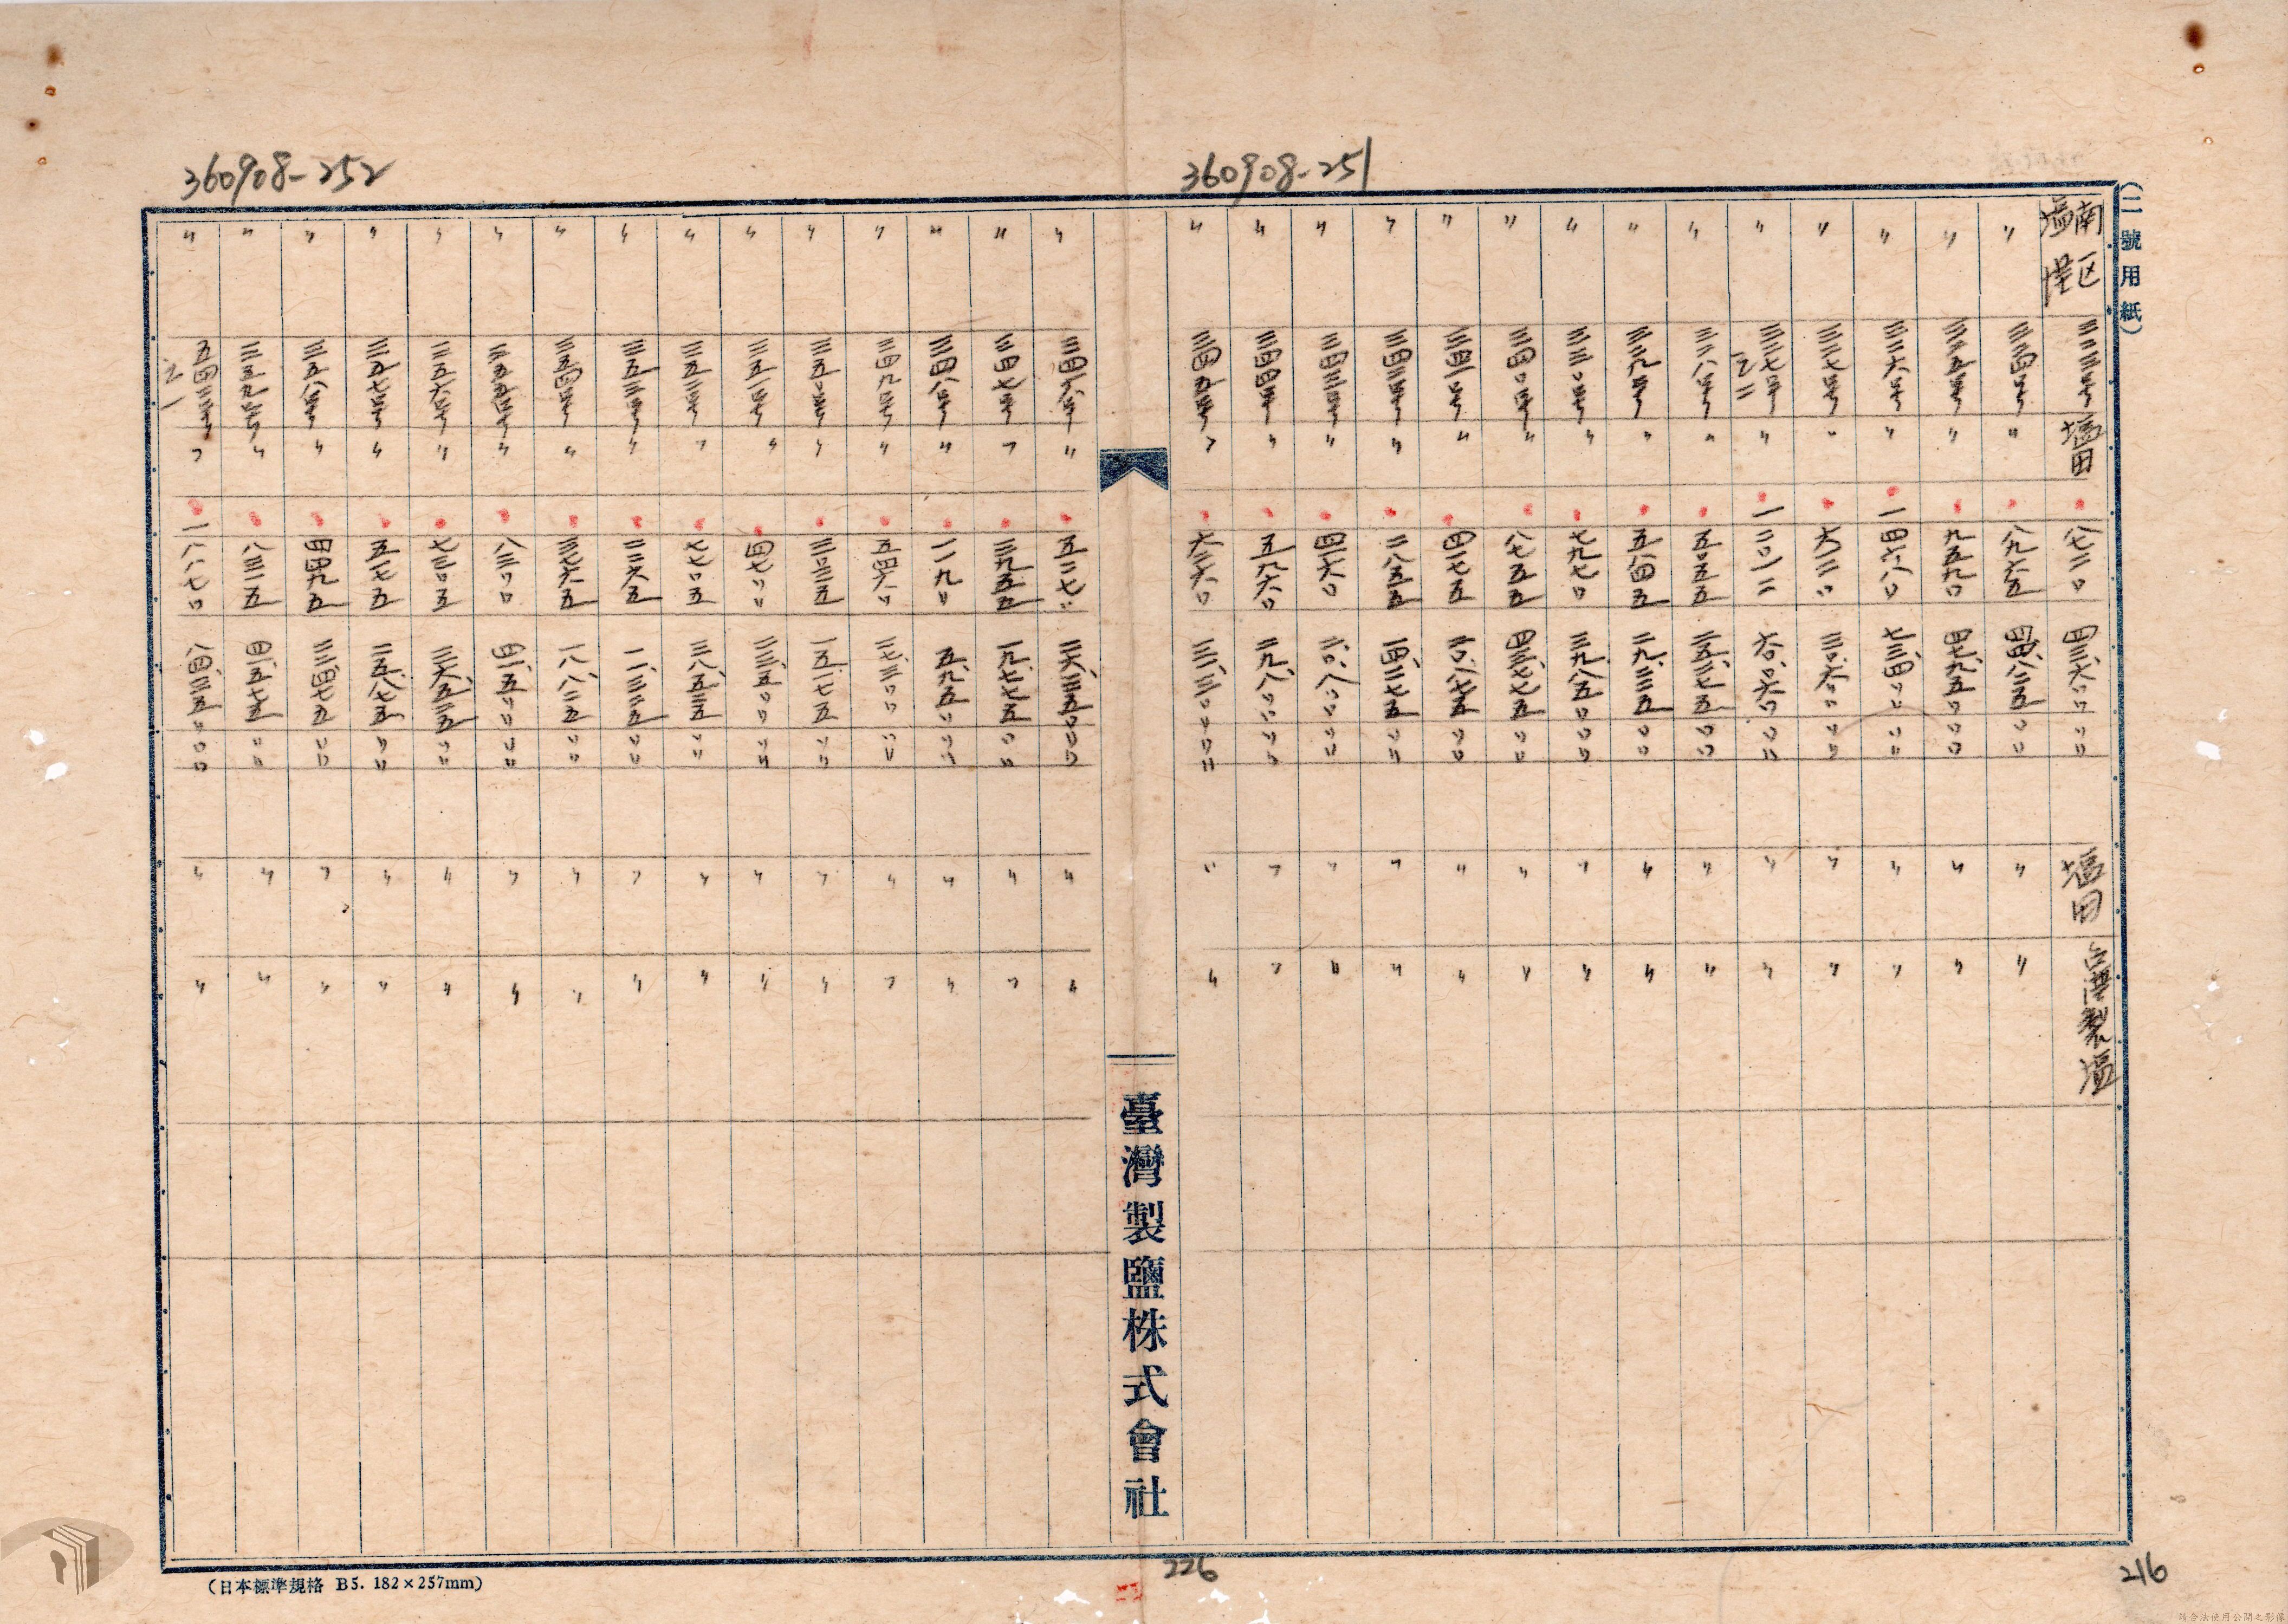 360908-252
360908-251
(二號用紙)
南区塩埕 三二三号 塩田 八七二〇 四三、六〇〇〇〇 塩田 台湾製塩
〃 三二四号 〃 八九六五 四四、八二五〇〇 〃 〃
〃 三二五号 〃 九五九〇 四七、九五〇〇〇 〃 〃
〃 三二六号 〃 一四六八〇 七三、四〇〇〇〇 〃 〃
〃 三二七号 〃 六一二〇 三〇、六〇〇〇〇 〃 〃
〃 三二七号ノ二 〃 一二〇一二 六〇、〇六〇〇〇 〃 〃
〃 三二八号 〃 五〇五五 二五、二七五〇〇 〃 〃
〃 三二九号 〃 五八四五 二九、二二五〇〇 〃 〃
〃 三三〇号 〃 七九七〇 三九、八五〇〇〇 〃 〃
〃 三四〇号 〃 八七五五 四三、七七五〇〇 〃 〃
〃 三四一号 〃 四一七五 二〇、八七五〇〇 〃 〃
〃 三四二号 〃 二八五五 一四、二七五〇〇 〃 〃
〃 三四三号 〃 四一六〇 二〇、八〇〇〇〇 〃 〃
〃 三四四号 〃 五九六〇 二九、八〇〇〇〇 〃 〃
〃 三四五号 〃 六二六〇 三一、三〇〇〇〇 〃 〃
臺灣製鹽株式會社
〃 三四六号 〃 五二七〇 二六、三五〇〇〇 〃 〃
〃 三四七号 〃 三九五五 一九、七七五〇〇 〃 〃
〃 三四八号 〃 一一九〇 五、九五〇〇〇 〃 〃
〃 三四九号 〃 五四六〇 二七、三〇〇〇〇 〃 〃
〃 三五〇号 〃 三〇三五 一五、一七五〇〇 〃 〃
〃 三五一号 〃 四七〇〇 二三、五〇〇〇〇 〃 〃
〃 三五二号 〃 七七〇五 三八、五二五〇〇 〃 〃
〃 三五三号 〃 二二六五 一一、三二五〇〇 〃 〃
〃 三五四号 〃 三七六五 一八、八二五〇〇 〃 〃
〃 三五五号 〃 八三〇〇 四一、五〇〇〇〇 〃 〃
〃 三五六号 〃 七三〇五 三六、五二五〇〇 〃 〃
〃 三五七号 〃 五一七五 二五、八七五〇〇 〃 〃
〃 三五八号 〃 四四九五 二二、四七五〇〇 〃 〃
〃 三五九号 〃 八三一五 四一、五七五〇〇 〃 〃
〃 五四三号ノ一 〃 一六八七〇 八四、三五〇〇〇 〃 〃
(日本標準規格 B5. 182×257mm)
226
216
請合法使用公開之影像